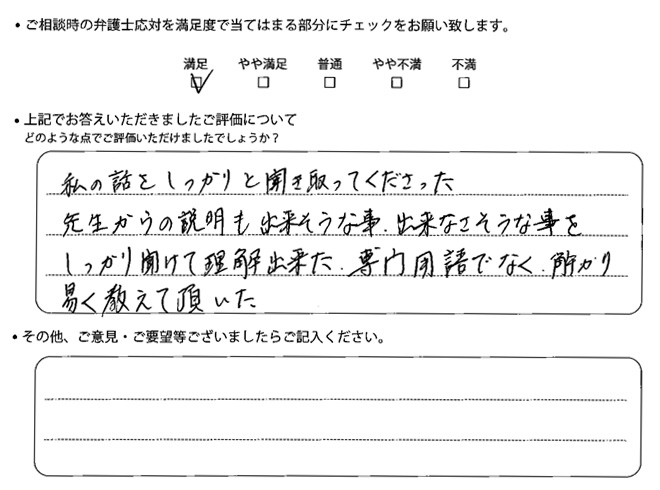 ・ご相談時の弁護士応対を満足度で当てはまる部分にチェックをお願い致します。
満足 やや満足 普通 やや不満 不満
・上記でお答えいただきましたご評価について
どのような点でご評価いただけましたでしょうか？
私の話をしっかりと聞き取ってくださった
先生からの説明も出来そうな事、出来なさそうな事を
しっかり聞けて理解出来た、専門用語でなく、解かり
易く教えて頂いた
・その他、ご意見・ご要望等ございましたらご記入ください。